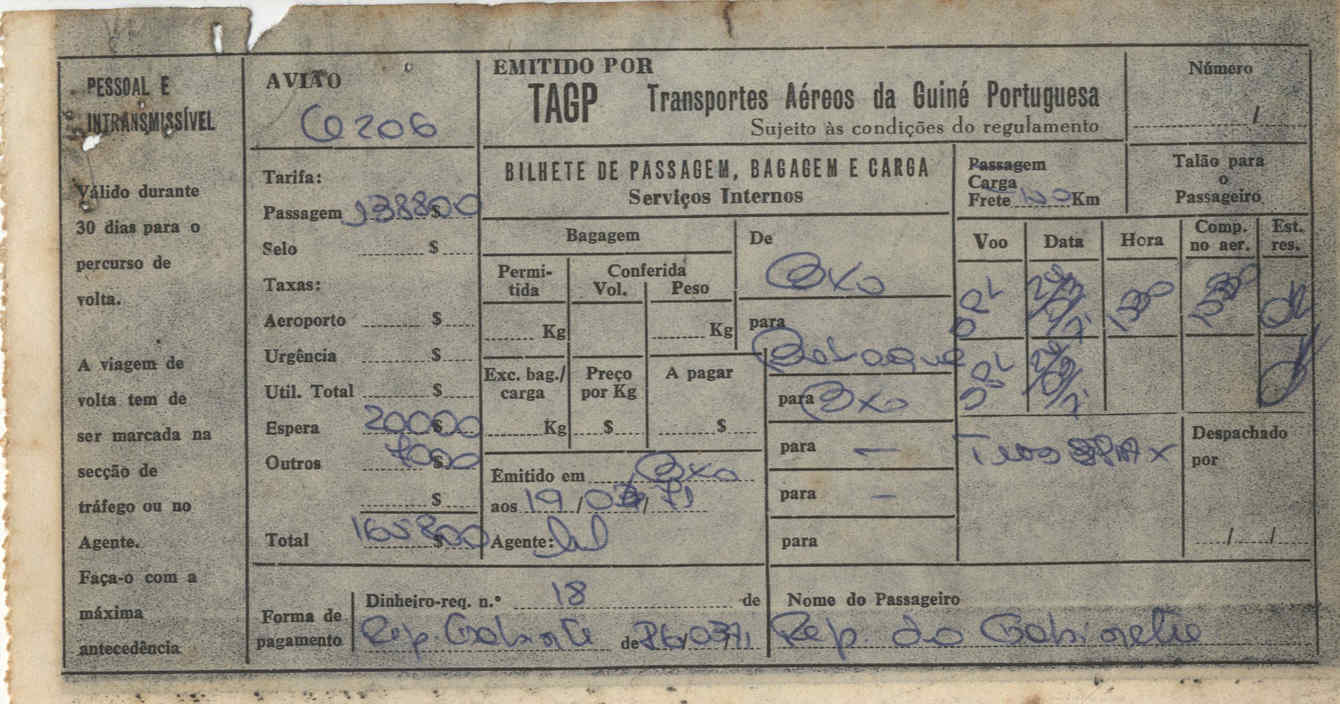 PESSOAL E
INTRANSMISSÍVEL
Válido durante
30 dias para o
percurso de
volta.
A viagem de
volta tem de
ser marcada na
secção de
tráfego ou no
Agente.
Faça-o com a
máxima
antecedência
AVIÃO
C 206
Tarifa:
Passagem 138$00
Selo $
Taxas:
Aeroporto $
Urgência $
Util. Total $
Espera 200$00
Outros $
$
Total $
EMITIDO POR
TAGP Transportes Aéreos da Guiné Portuguesa
Sujeito às condições do regulamento
Número
/
BILHETE DE PASSAGEM, BAGAGEM E CARGA
Serviços Internos
Passagem
Carga
Frete Km
Talão para
o
Passageiro
Bagagem
Permi-
tida
Conferida
Vol. Peso
Kg Kg
Exc. bag./
carga
Preço
por Kg
A pagar
Kg $ $
Emitido em Bxo
aos 19/03/71
Agente:
De
Bxo
para
para Bxo
para —
para —
para
Voo Data Hora Comp.
no aer. Est.
res.
Despachado
por
/ /
Forma de
pagamento
Dinheiro-req. n.º 18 de
Rep. Gabinete de
Nome do Passageiro
Rep do Gabinete